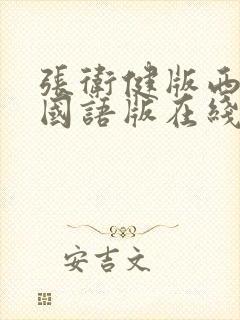 張衛健版西
國語版在綫
安吉文